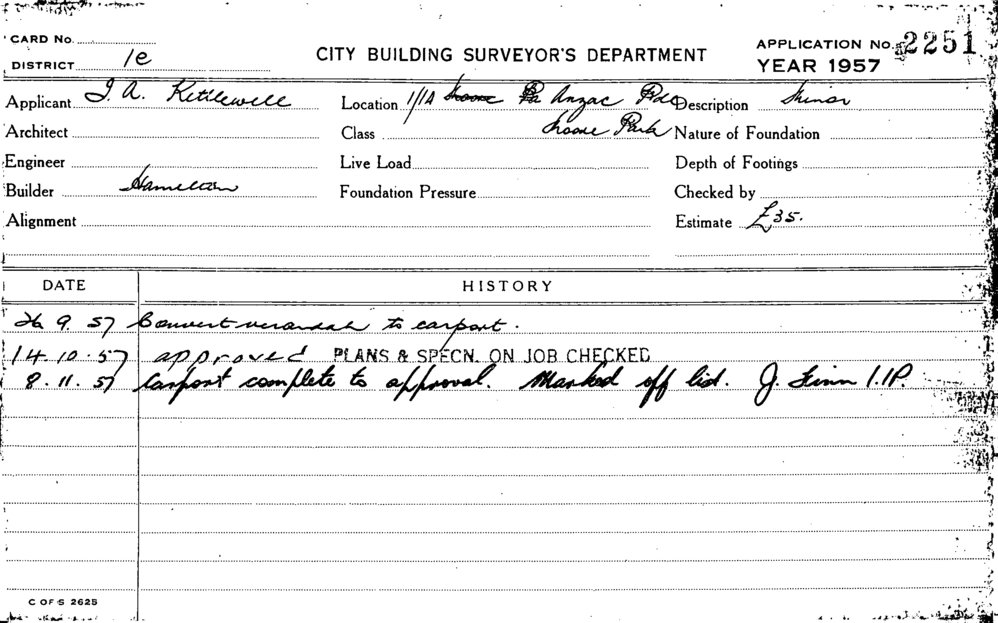 CARD No.
DISTRICT 1e
CITY BUILDING SURVEYOR'S DEPARTMENT
APPLICATION No. 2251
YEAR 1957
Applicant J. A. Kettlewell Location 1/1A Moore Pa Anzac Pde Description Minor
Architect Class Moore Park Nature of Foundation
Engineer Live Load Depth of Footings
Builder Hamelton Foundation Pressure Checked by
Alignment Estimate £35.
DATE HISTORY
26 9. 57 Convert verandah to carport.
14. 10. 57 approved PLANS & SPECN. ON JOB CHECKED
8. 11. 57 Carport complete to approval. Marked off list. J.
C OF S 2625